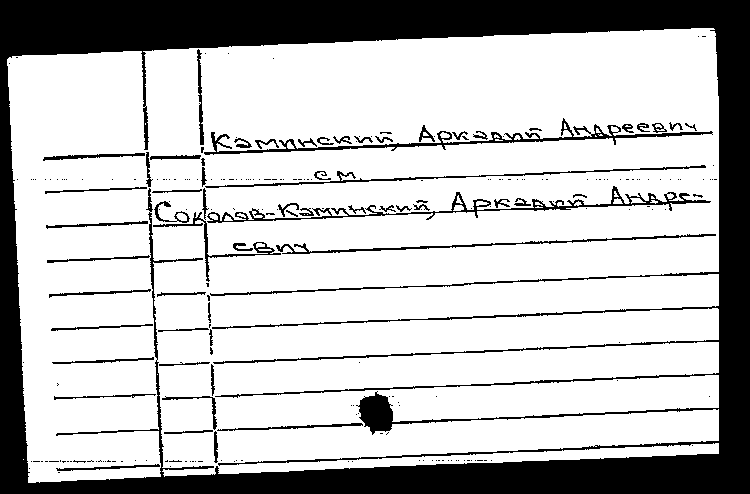 Каминский, Аркадий Андреевич
см.
Соколов-Каминский, Аркадий Андре-
евич